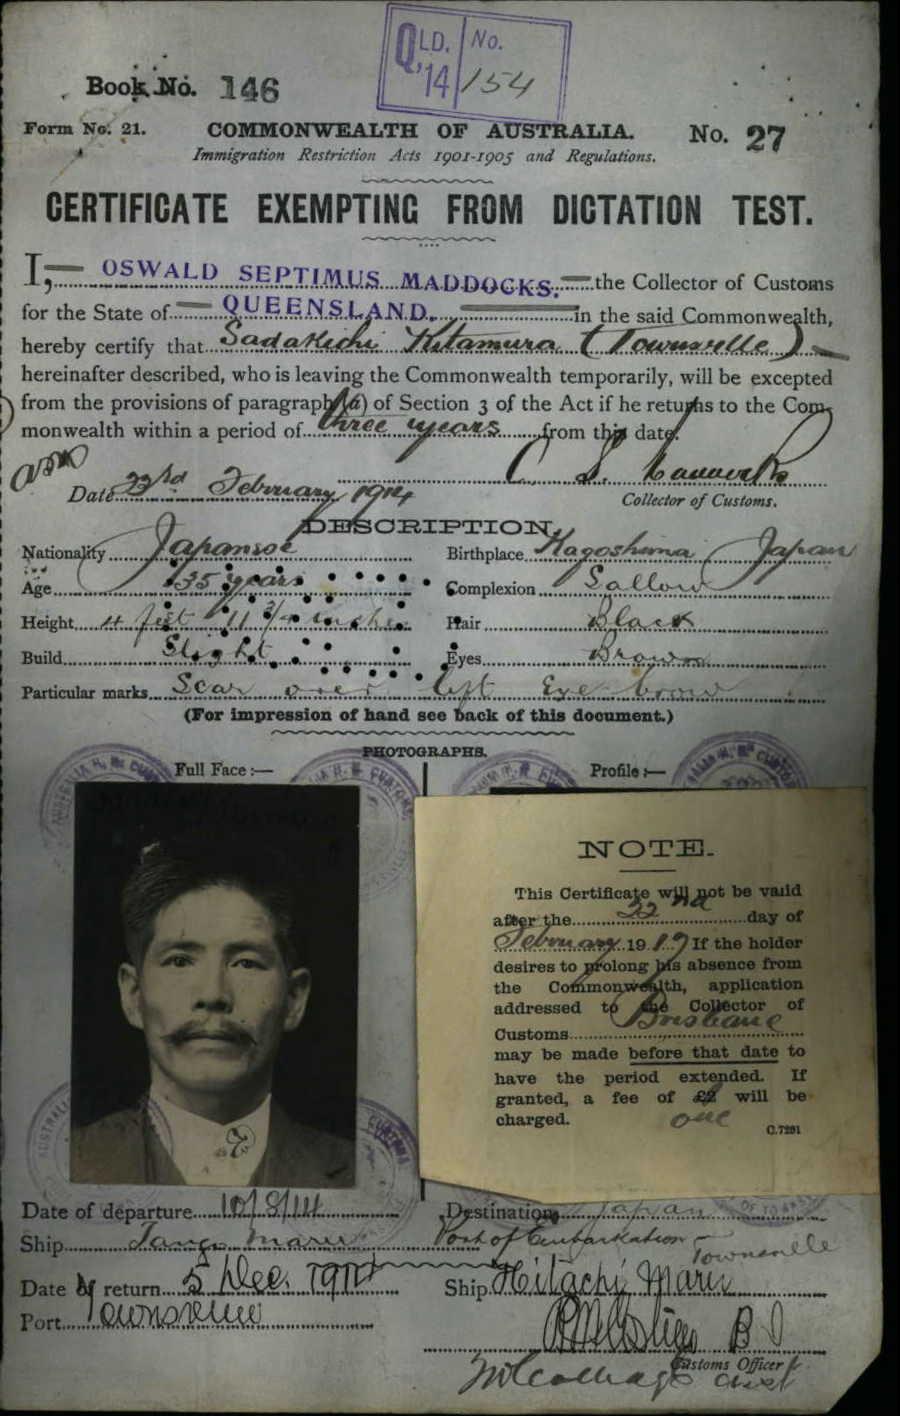 QLD. No.
'14 154
Book No. 146
Form No. 21. COMMONWEALTH OF AUSTRALIA. No. 27
Immigration Restriction Acts 1901-1905 and Regulations.
CERTIFICATE EXEMPTING FROM DICTATION TEST.
I, OSWALD SEPTIMUS MADDOCKS. the Collector of Customs
for the State of QUEENSLAND. in the said Commonwealth,
hereby certify that Sadakichi Kitamura (Townsville)
hereinafter described, who is leaving the Commonwealth temporarily, will be excepted
from the provisions of paragraph (a) of Section 3 of the Act if he returns to the Com-
monwealth within a period of three years from this date.
Date 23rd February 1914
Collector of Customs.
DESCRIPTION.
Nationality Japanese Birthplace Kagoshima Japan
Age 35 years Complexion Sallow
Height 4 feet 11 3/4 inches Hair Black
Build Slight Eyes Brown
Particular marks Scar over left Eye brow
(For impression of hand see back of this document.)
PHOTOGRAPHS.
Full Face :— Profile :—
NOTE.
This Certificate will not be valid
after the 22nd day of
February 1917 If the holder
desires to prolong his absence from
the Commonwealth, application
addressed to the Collector of
Customs Brisbane
may be made before that date to
have the period extended. If
granted, a fee of £2 will be
charged. one
C.7291
Date of departure 10/8/14 Destination Japan
Ship Tango Maru Port of Embarkation Townsville
Date of return 5 Dec. 1914 Ship Hitachi Maru
Port Townsville
Customs Officer